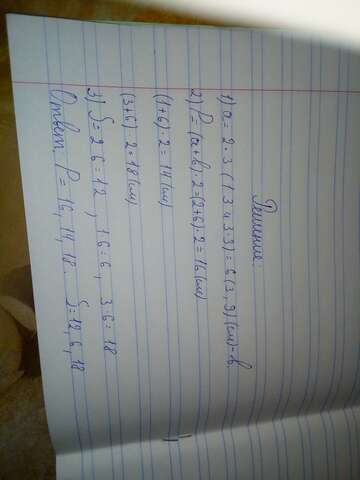 Решение:
1) a = 2 · 3 (1 · 3 и 3 · 3) = 6 (3, 9) (см) - b
2) P = (a + b) · 2 = (2 + 6) · 2 = 16 (см)
(1 + 6) · 2 = 14 (см)
(3 + 6) · 2 = 18 (см)
3) S = 2 · 6 = 12, 1 · 6 = 6, 3 · 6 = 18
Ответ: P = 16, 14, 18. S = 12, 6, 18